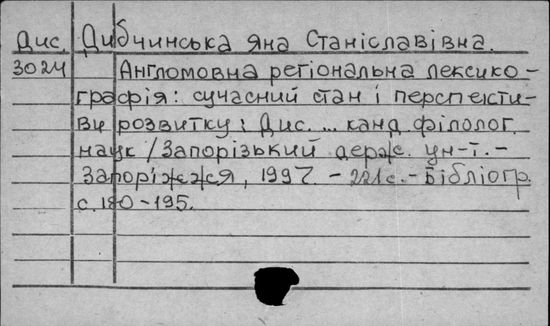 Дис. Дибчинська Яна Станіславівна.
3024 Англомовна регіональна лексико-
графія: сучасний стан і перспекти-
ви розвитку: Дис. ... канд. філолог.
наук / Запорізький держ. ун-т. -
Запоріжжя, 1997. - 221с. - Бібліогр.
с. 180-195.